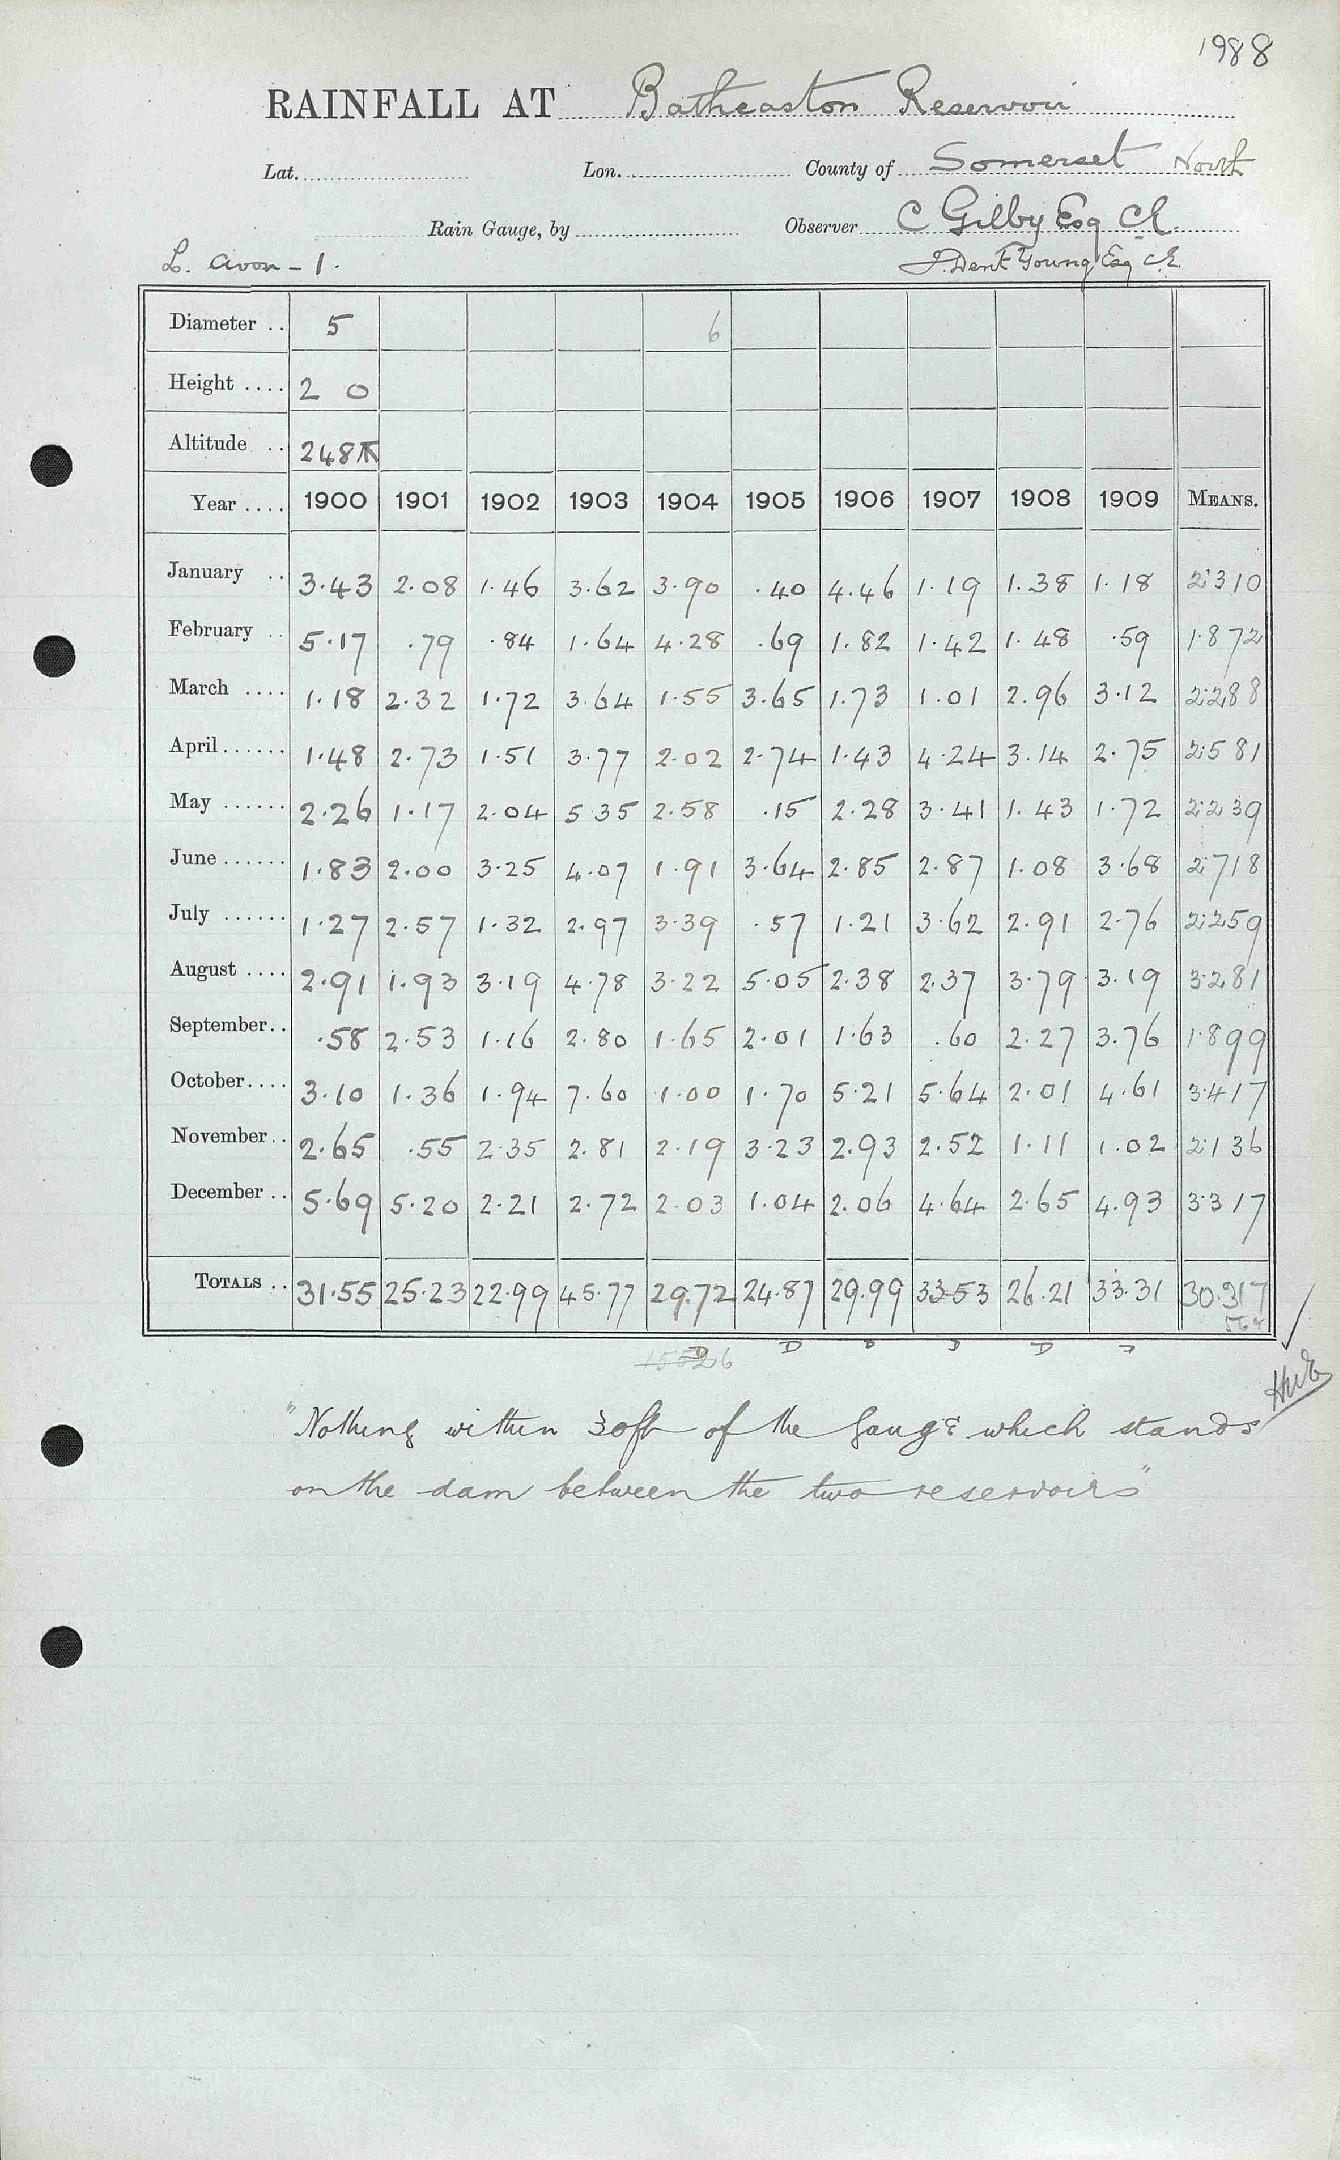 1988
RAINFALL AT Batheaston Reservoir
Lat. Lon. County of Somerset North
Rain Gauge, by Observer C Gilby Esq CE.
L. Avon - 1. J. Dent Young Esq CE
Diameter .. 5 6
Height .... 2 0
Altitude .. 248
Year .... 1900 1901 1902 1903 1904 1905 1906 1907 1908 1909 MEANS.
January .. 3.43 2.08 1.46 3.62 3.90 .40 4.46 1.19 1.38 1.18 2.310
February .. 5.17 .79 .84 1.64 4.28 .69 1.82 1.42 1.48 .59 1.872
March .... 1.18 2.32 1.72 3.64 1.55 3.65 1.73 1.01 2.96 3.12 2.288
April ...... 1.48 2.73 1.51 3.77 2.02 2.74 1.43 4.24 3.14 2.75 2.581
May ...... 2.26 1.17 2.04 5.35 2.58 .15 2.28 3.41 1.43 1.72 2.239
June ...... 1.83 2.00 3.25 4.07 1.91 3.64 2.85 2.87 1.08 3.68 2.718
July ...... 1.27 2.57 1.32 2.97 3.39 .57 1.21 3.62 2.91 2.76 2.259
August .... 2.91 1.93 3.19 4.78 3.22 5.05 2.38 2.37 3.79 3.19 3.281
September.. .58 2.53 1.16 2.80 1.65 2.01 1.63 .60 2.27 3.76 1.899
October.... 3.10 1.36 1.94 7.60 1.00 1.70 5.21 5.64 2.01 4.61 3.417
November.. 2.65 .55 2.35 2.81 2.19 3.23 2.93 2.52 1.11 1.02 2.136
December .. 5.69 5.20 2.21 2.72 2.03 1.04 2.06 4.64 2.65 4.93 3.317
TOTALS .. 31.55 25.23 22.99 45.77 29.72 24.87 29.99 33.53 26.21 33.31 30.317
D D D D D
"Nothing within 30ft of the gauge which stands
on the dam between the two reservoirs"